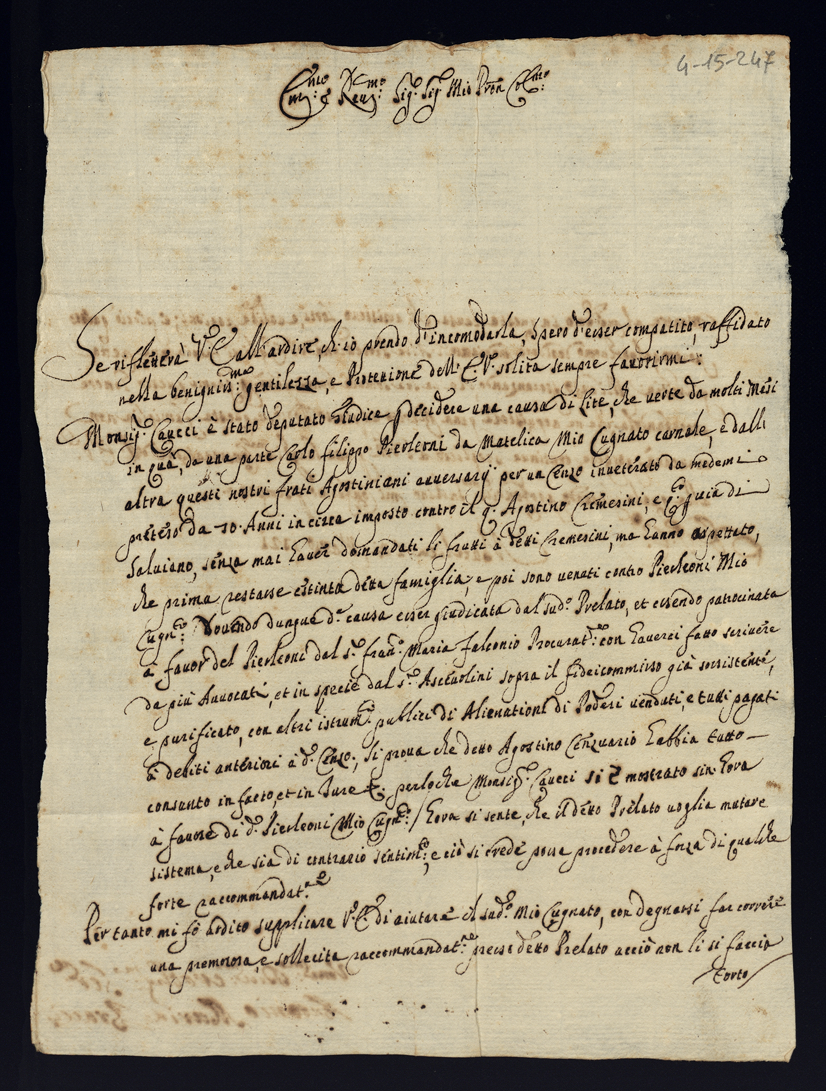 4-15-247
Em:mo e Rev:mo Sig:r Sig:r Mio Pron Col:mo
Se rifletterà V.E. all'ardire, ch'io prendo d'incomodarla, spero d'esser compatito, raffidato
nella benigniss:ma gentilezza, e Protezione dell'E.V. solita sempre favorirmi:
Monsig:r Caucci è stato deputato Giudice p decidere una causa di Lite, che verte da molti Mesi
in quà, da una parte Carlo Filippo Pierleoni da Matelica Mio Cugnato carnale, e dall'
altra questi nostri frati Agostiniani avversarij per un Cenzo inveterato da medemi
preteso da 70. Anni in circa imposto contro il q. Agostino Cremesini, e q. quia di
Salviano, senza mai haver domandati li frutti à detti Cremesini, ma hanno aspettato,
che prima restasse estinta detta famiglia, e poi sono venuti contro Pierleoni Mio
Cugn:to: Dovendo dunque d:a causa esser giudicata dal sud:o Prelato, et essendo patrocinata
à favor del Pierleoni dal S:r Fran:co Maria Falconio Procurat:re con haverci fatto scrivere
da più Avvocati, et in specie dal S:r Ascevolini sopra il fideicommisso già sossistente,
e purificato, con altri istrum:ti publici di Alienationi di Poderi venduti, e tutti pagati
à debiti anteriori à d:o Cenzo, si prova che detto Agostino Cenzuario habbia tutto
consunto in facto, et in Jure perloche Monsig:r Caucci si è mostrato sin hora
à favore di d:o Pierleoni Mio Cugn:to / hora si sente, che il detto Prelato voglia mutare
sistema, e che sia di contrario sentim:to, e ciò si crede possa procedere à forza di qualche
forte raccommandat:ne
Per tanto mi fò ardito supplicare V.E. di aiutare il sud:o Mio Cugnato, con degnarsi far correre
una premorosa, e sollecita raccommandat:ne presso detto Prelato acciò non li si faccia
torto